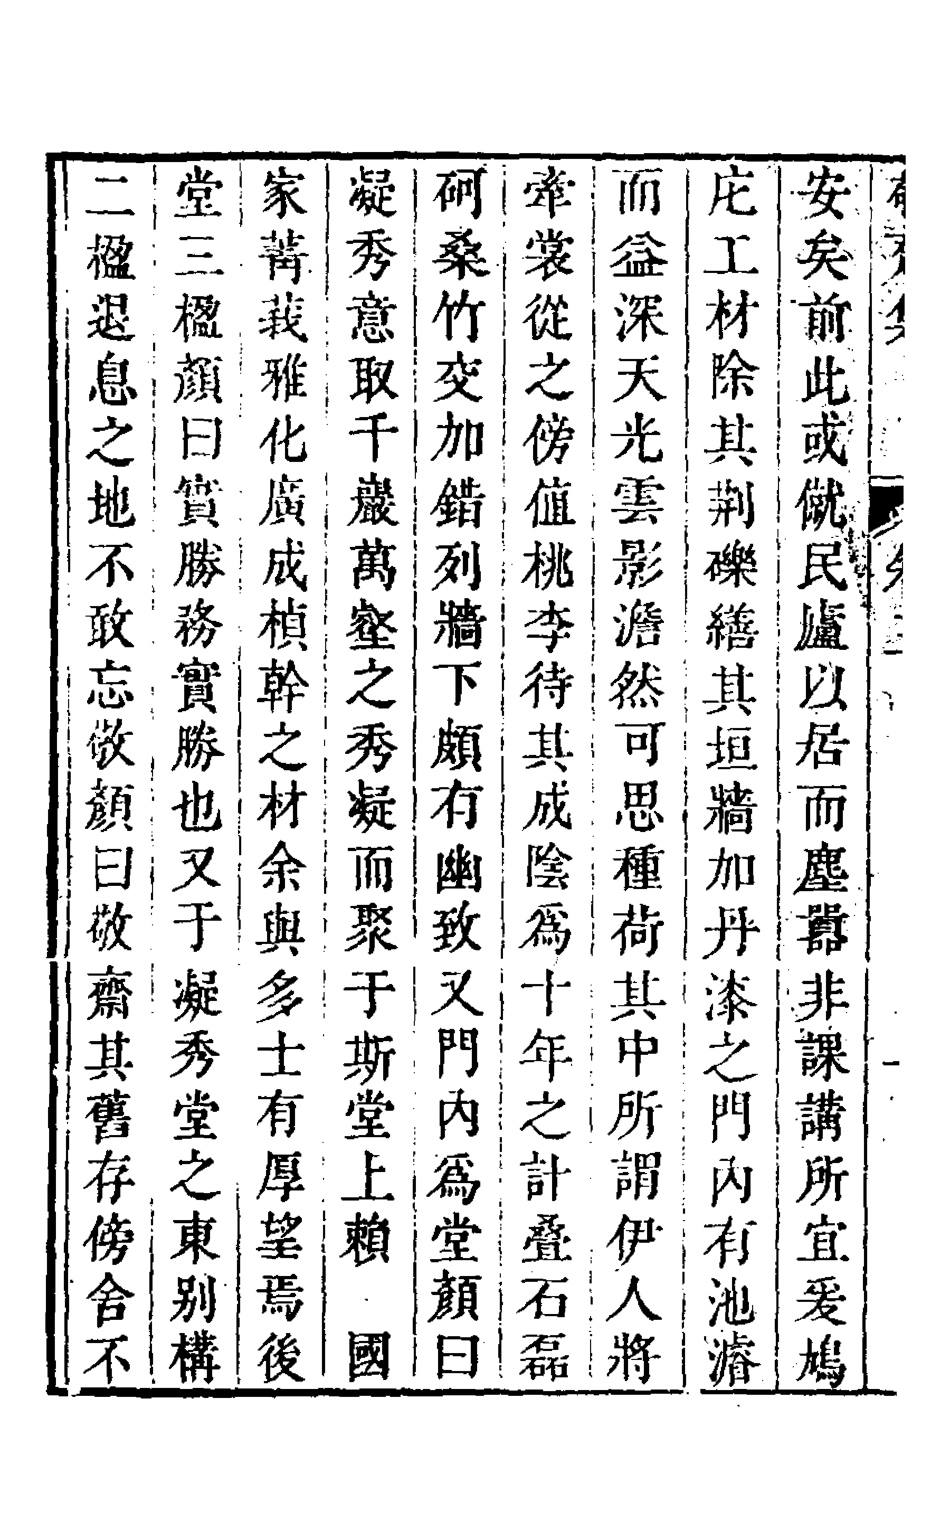 安矣前此或僦民廬以居而塵嚻非課講所宜爰鳩
庀工材除其荆礫繕其垣牆加丹漆之門內有池濬
而益深天光雲影澹然可思種荷其中所謂伊人將
牽裳從之傍值桃李待其成陰爲十年之計叠石磊
砢桑竹交加錯列牆下頗有幽致又門內爲堂顏曰
凝秀意取千巖萬壑之秀凝而聚于斯堂上賴 國
家菁莪雅化廣成楨幹之材余與多士有厚望焉後
堂三楹顏曰實勝務實勝也又于凝秀堂之東別構
二楹退息之地不敢忘敬顏曰敬齋其舊存傍舍不